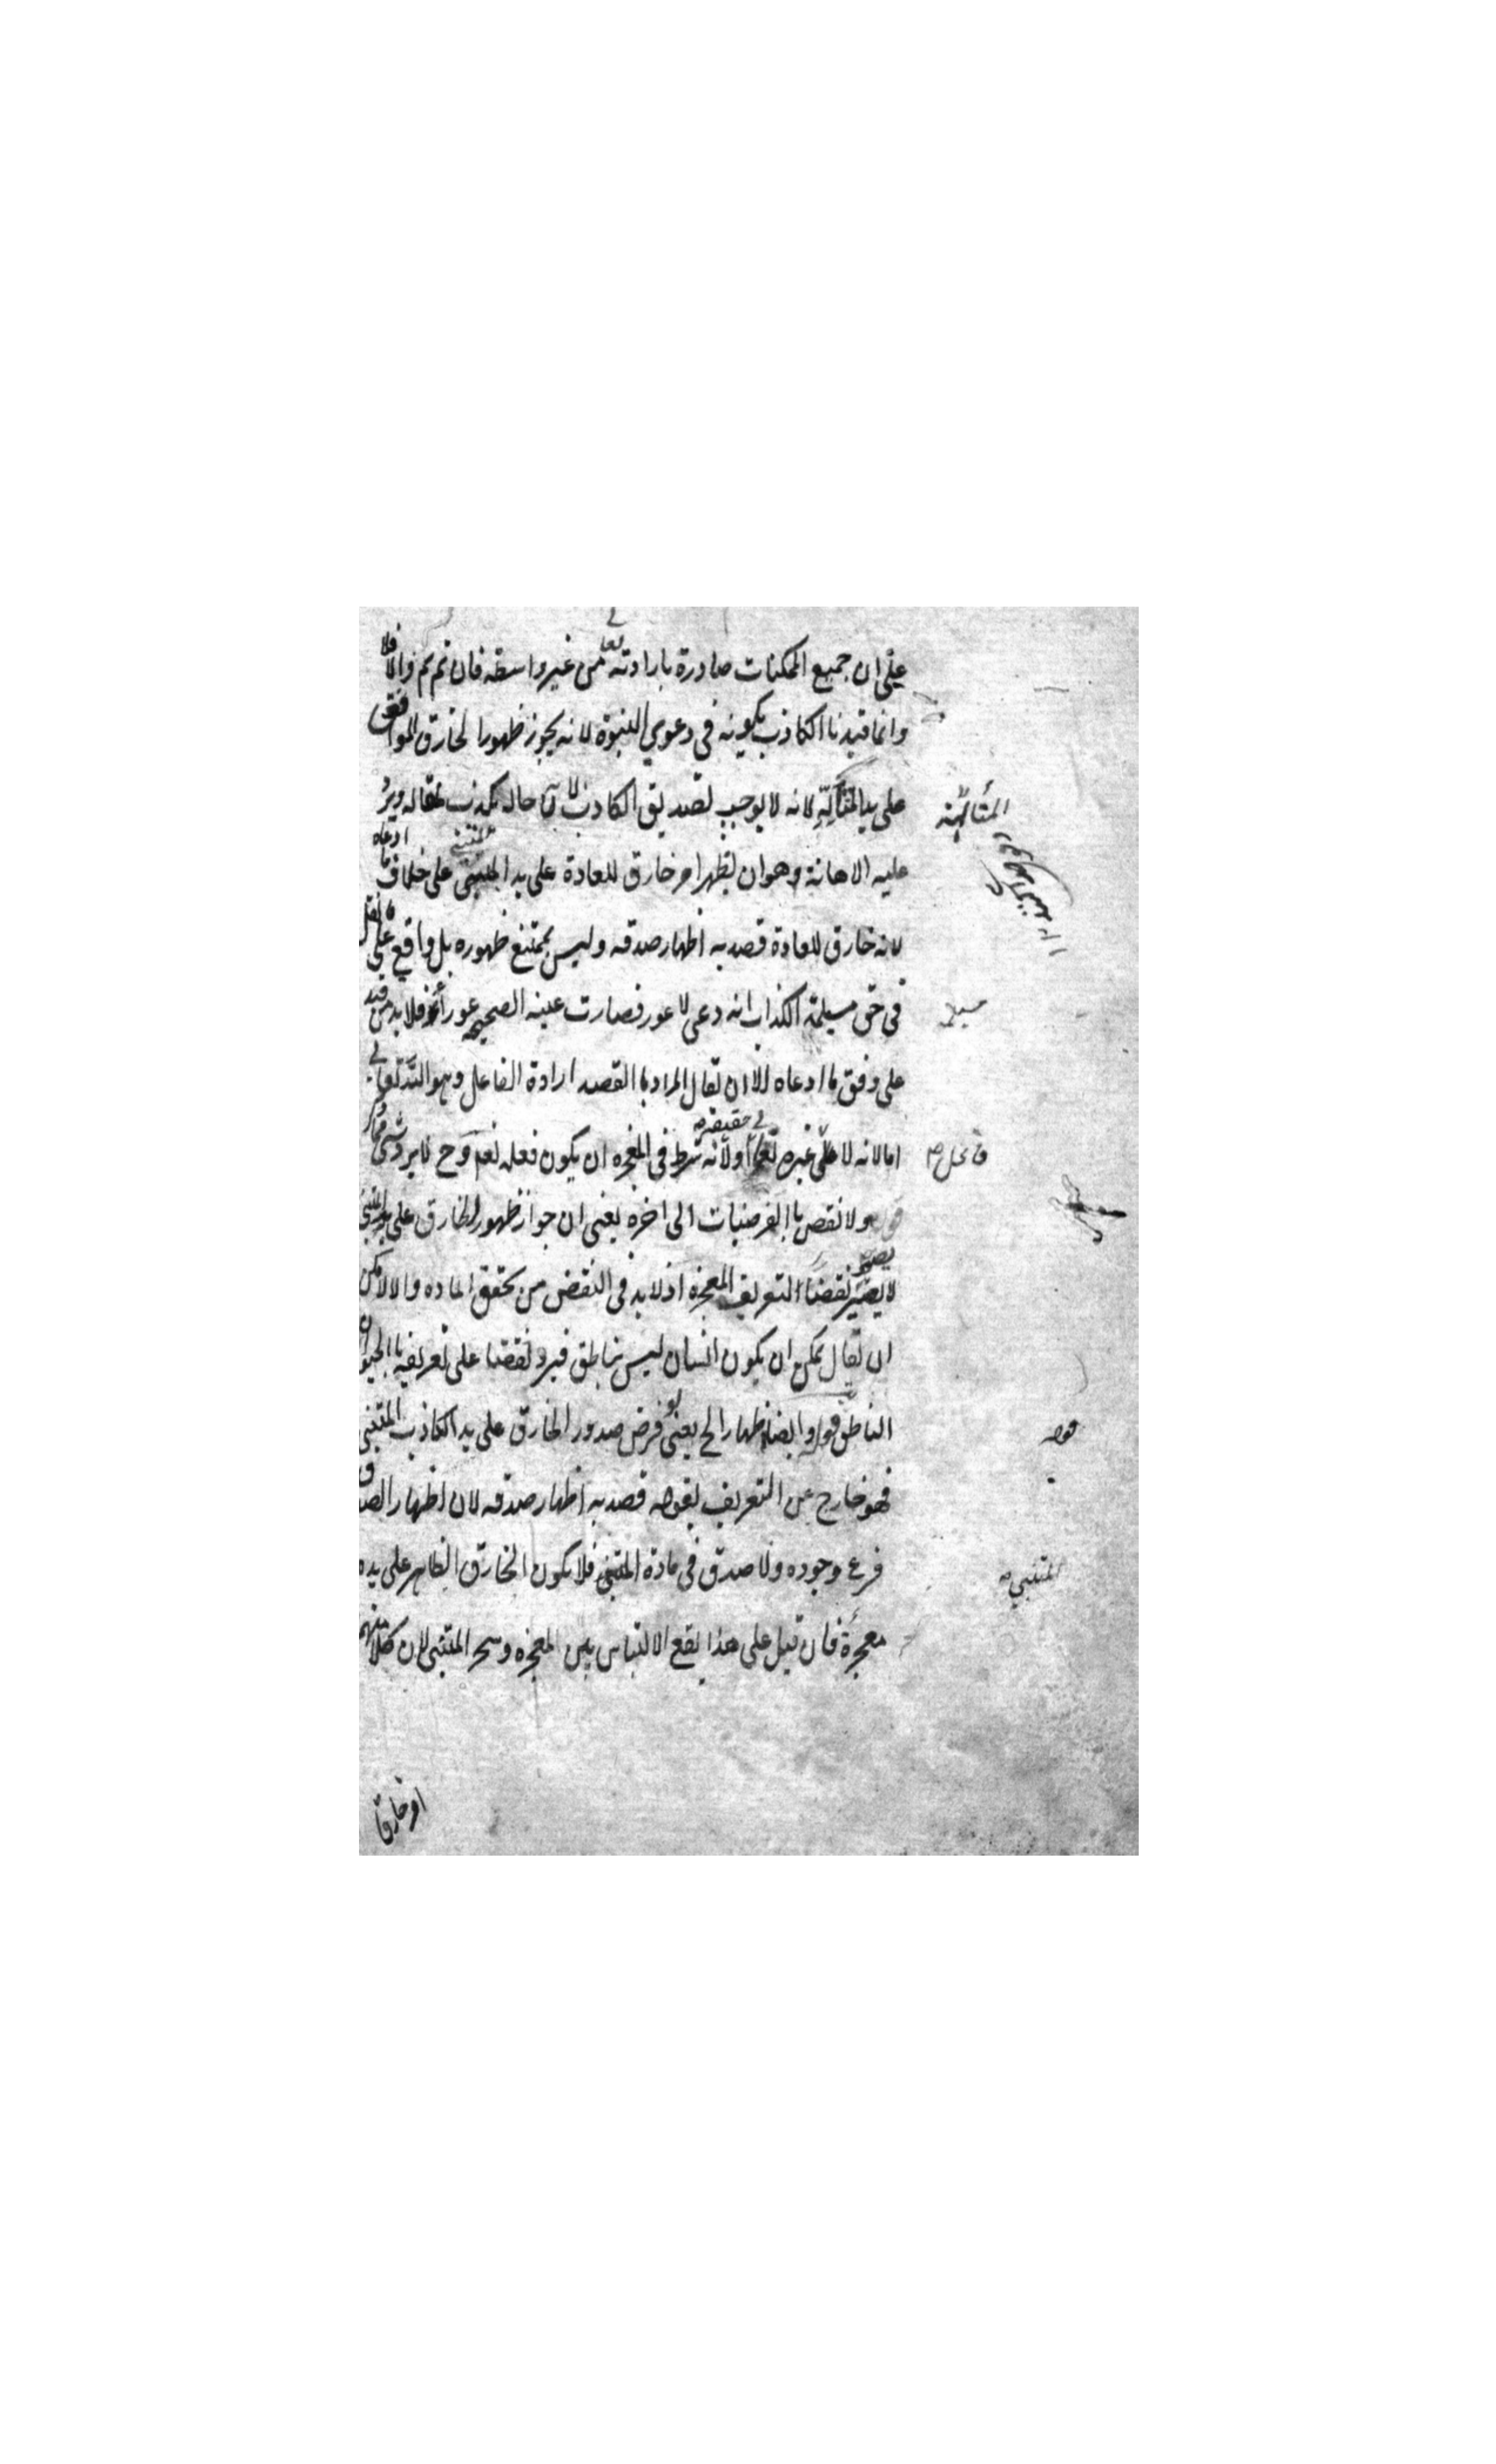 على ان جميع الممكنات صادرة بارادته تعا من غير واسطة فان تم تم والا فلا
وانما قيدنا الكاذب بكونه في دعوي النبوة لانه يجوز ظهور الخارق الموافق
على يد المتأله لانه لا يوجب تصديق الكاذب لان حاله يكذب مقاله ويرد
عليه الاهانة وهو ان يظهر امر خارق للعادة على يد المتنبى على خلاف ما ادعاه
لانه خارق للعادة قصد به اظهار صدقه وليس بممتنع ظهوره بل واقع على ما نقل
في حق مسيلمة الكذاب انه دعى لاعور فصارت عينه الصحيحة عوراء فلا بد من قيد
على وفق ما ادعاه الا ان يقال المراد بالقصد ارادة الفاعل وهو الله تعالى
اما لانه لا غيره تعا او لانه شرط في المعجزه ان يكون فعله تعم وح لا يرد
قوله ولا نقض با الفرضيات الى اخره يعنى ان جواز ظهور الخارق على يد المتنبى
لا يصير نقضا التعريف المعجزه اذ لا بد في النقض من تحقق الماده والا لامكن
ان يقال يمكن ان يكون انسان ليس بناطق فيرد نقضا على تعريفه با الحيوان
الناطق قوله وايضا اظهار الخ يعنى لو فرض صدور الخارق على يد الكاذب المتنبى
فهو خارج عن التعريف بقوله قصد به اظهار صدقه لان اظهار الصدق
فرع وجوده ولا صدق في مادة المتنبى فلا يكون الخارق الظاهر على يده
معجزة فان قيل على هذا يقع الالتباس بين المعجزه وسحر المتنبى لان كلا منهما
المتألهة
مسيلمه
قوله
المتنبي
او خارقا